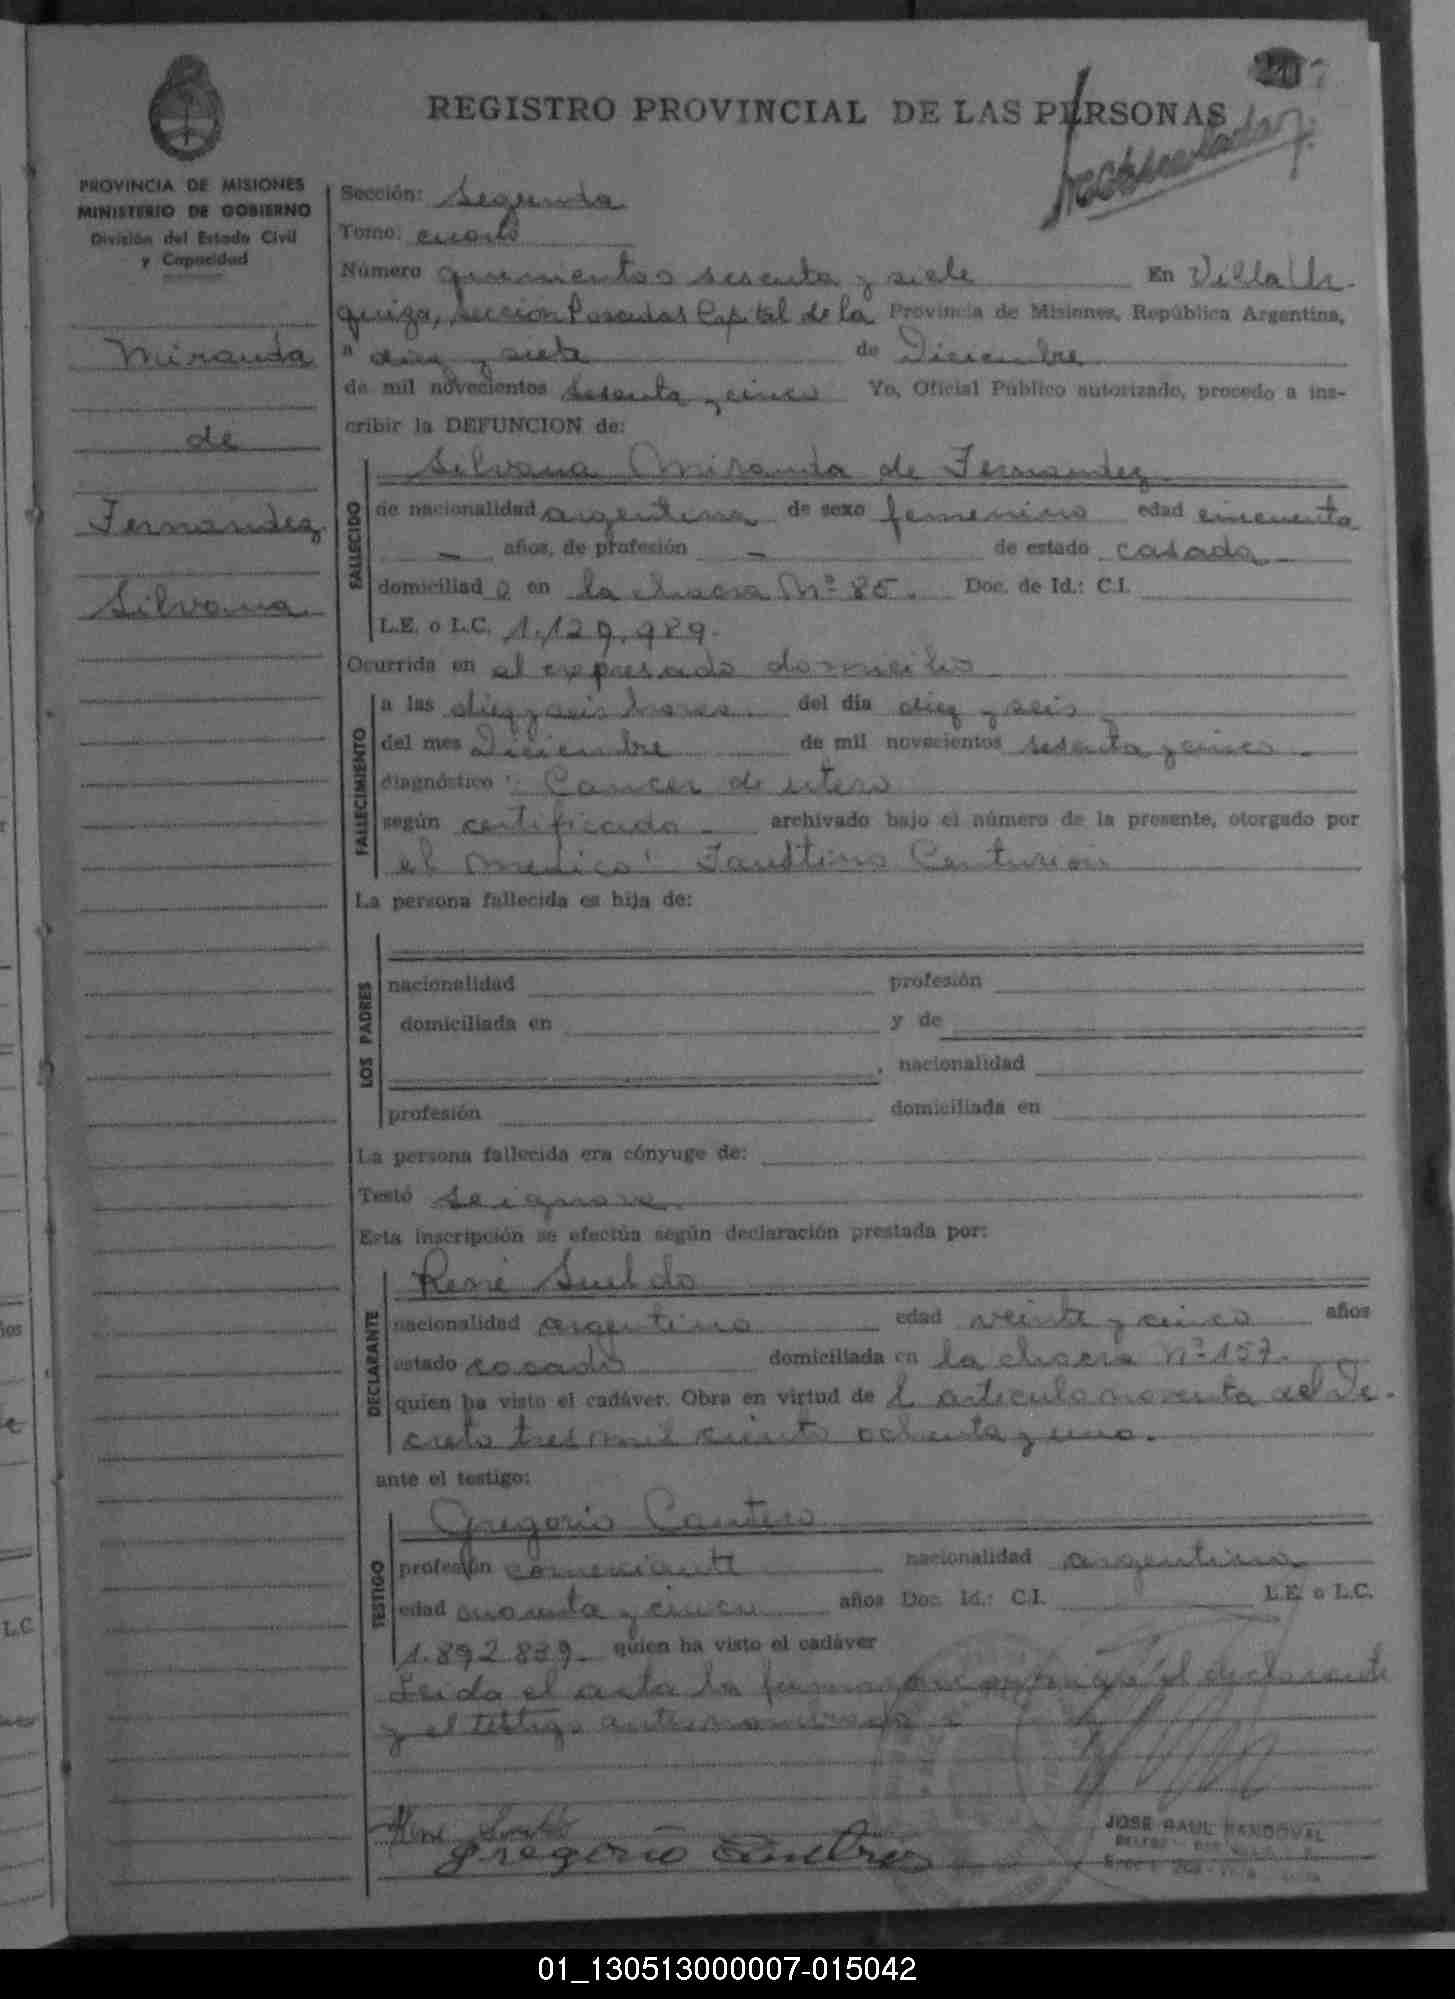 207
REGISTRO PROVINCIAL DE LAS PERSONAS
PROVINCIA DE MISIONES
MINISTERIO DE GOBIERNO
División del Estado Civil
y Capacidad
Miranda
de
Fernandez
Silvana
Sección: Segunda
Tomo: cuarto
Número quinientos sesenta y siete En Villa Ur-
quiza, Sección Posadas Capital de la Provincia de Misiones, República Argentina,
a diez y siete de Diciembre
de mil novecientos sesenta y cinco Yo, Oficial Público autorizado, procedo a ins-
cribir la DEFUNCION de:
Silvana Miranda de Fernandez
FALLECIDO
de nacionalidad argentina de sexo femenino edad cincuenta
— años, de profesión — de estado casada
domiciliad a en la chacra Nº 85. Doc. de Id.: C.I.
L.E. o L.C. 1.129.989.
Ocurrida en el expresado domicilio
FALLECIMIENTO
a las diez y seis horas del día diez y seis
del mes Diciembre de mil novecientos sesenta y cinco.
diagnóstico: Cancer de utero
según certificado archivado bajo el número de la presente, otorgado por
el medico: Faustino Centurion
La persona fallecida es hija de:
LOS PADRES
nacionalidad profesión
domiciliada en y de
, nacionalidad
profesión domiciliada en
La persona fallecida era cónyuge de:
Testó se ignora.
Esta inscripción se efectúa según declaración prestada por:
René Sueldo
DECLARANTE
nacionalidad argentino edad veinte y cinco años
estado casado domiciliada en la chacra Nº 157.
quien ha visto el cadáver. Obra en virtud de l articulo noventa del De-
creto tres mil ciento ochenta y uno.
ante el testigo:
Gregorio Cantero
TESTIGO
profesión comerciante nacionalidad argentina
edad cuarenta y cinco años Doc. Id.: C.I. L.E. o L.C.
1.892.839. quien ha visto el cadáver
Leida el acta la firman conmigo el declarante
y el testigo antenombrado
René Sueldo
Gregorio Cantero
JOSE RAUL SANDOVAL
01_130513000007-015042